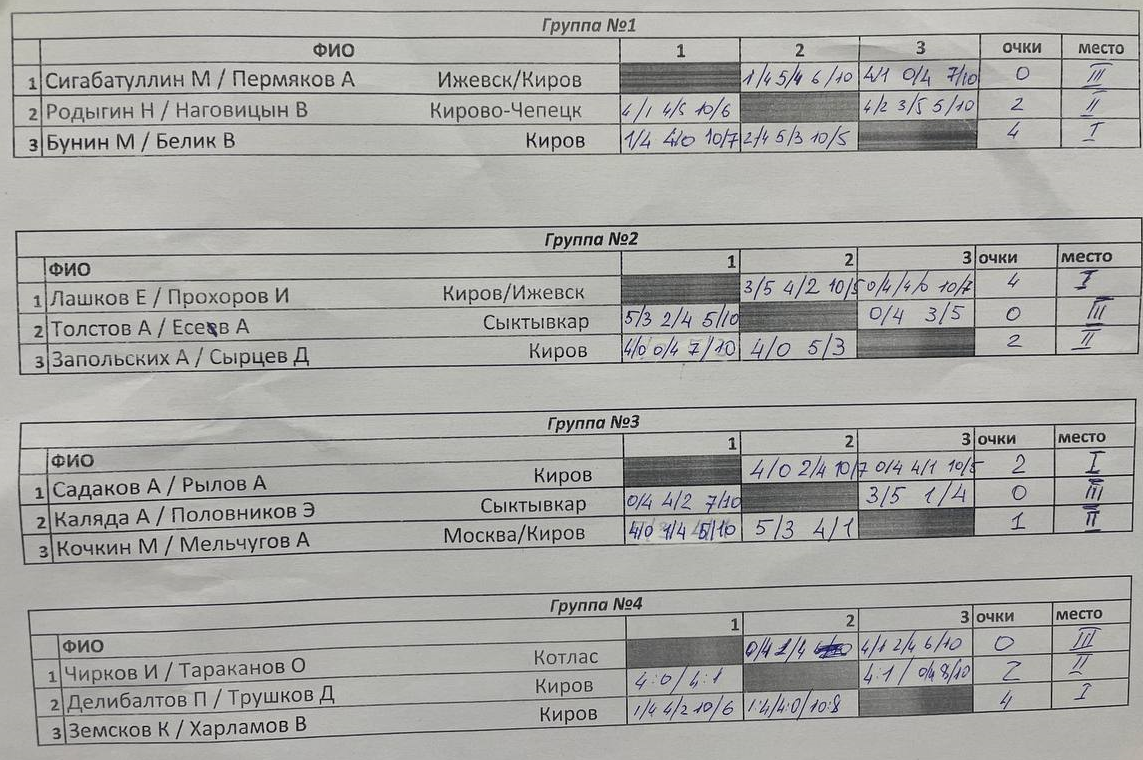 Группа №1
ФИО 1 2 3 очки место
1 Сигабатуллин М / Пермяков А Ижевск/Киров 1/4 5/4 6/10 4/1 0/4 7/10 0 III
2 Родыгин Н / Наговицын В Кирово-Чепецк 4/1 4/5 10/6 4/2 3/5 5/10 2 II
3 Бунин М / Белик В Киров 1/4 4/0 10/7 2/4 5/3 10/5 4 I
Группа №2
ФИО 1 2 3 очки место
1 Лашков Е / Прохоров И Киров/Ижевск 3/5 4/2 10/5 0/4 4/0 10/7 4 I
2 Толстов А / Есев А Сыктывкар 5/3 2/4 5/10 0/4 3/5 0 III
3 Запольских А / Сырцев Д Киров 4/0 0/4 7/10 4/0 5/3 2 II
Группа №3
ФИО 1 2 3 очки место
1 Садаков А / Рылов А Киров 4/0 2/4 10/7 0/4 4/1 10/5 2 I
2 Каляда А / Половников Э Сыктывкар 0/4 4/2 7/10 3/5 1/4 0 III
3 Кочкин М / Мельчугов А Москва/Киров 4/0 1/4 5/10 5/3 4/1 1 II
Группа №4
ФИО 1 2 3 очки место
1 Чирков И / Тараканов О Котлас 0/4 1/4 4/1 2/4 6/10 0 III
2 Делибалтов П / Трушков Д Киров 4:0/4:1 4:1/ 0/4 8/10 2 II
3 Земсков К / Харламов В Киров 1/4 4/2 10/6 1:4/4:0/10:8 4 I